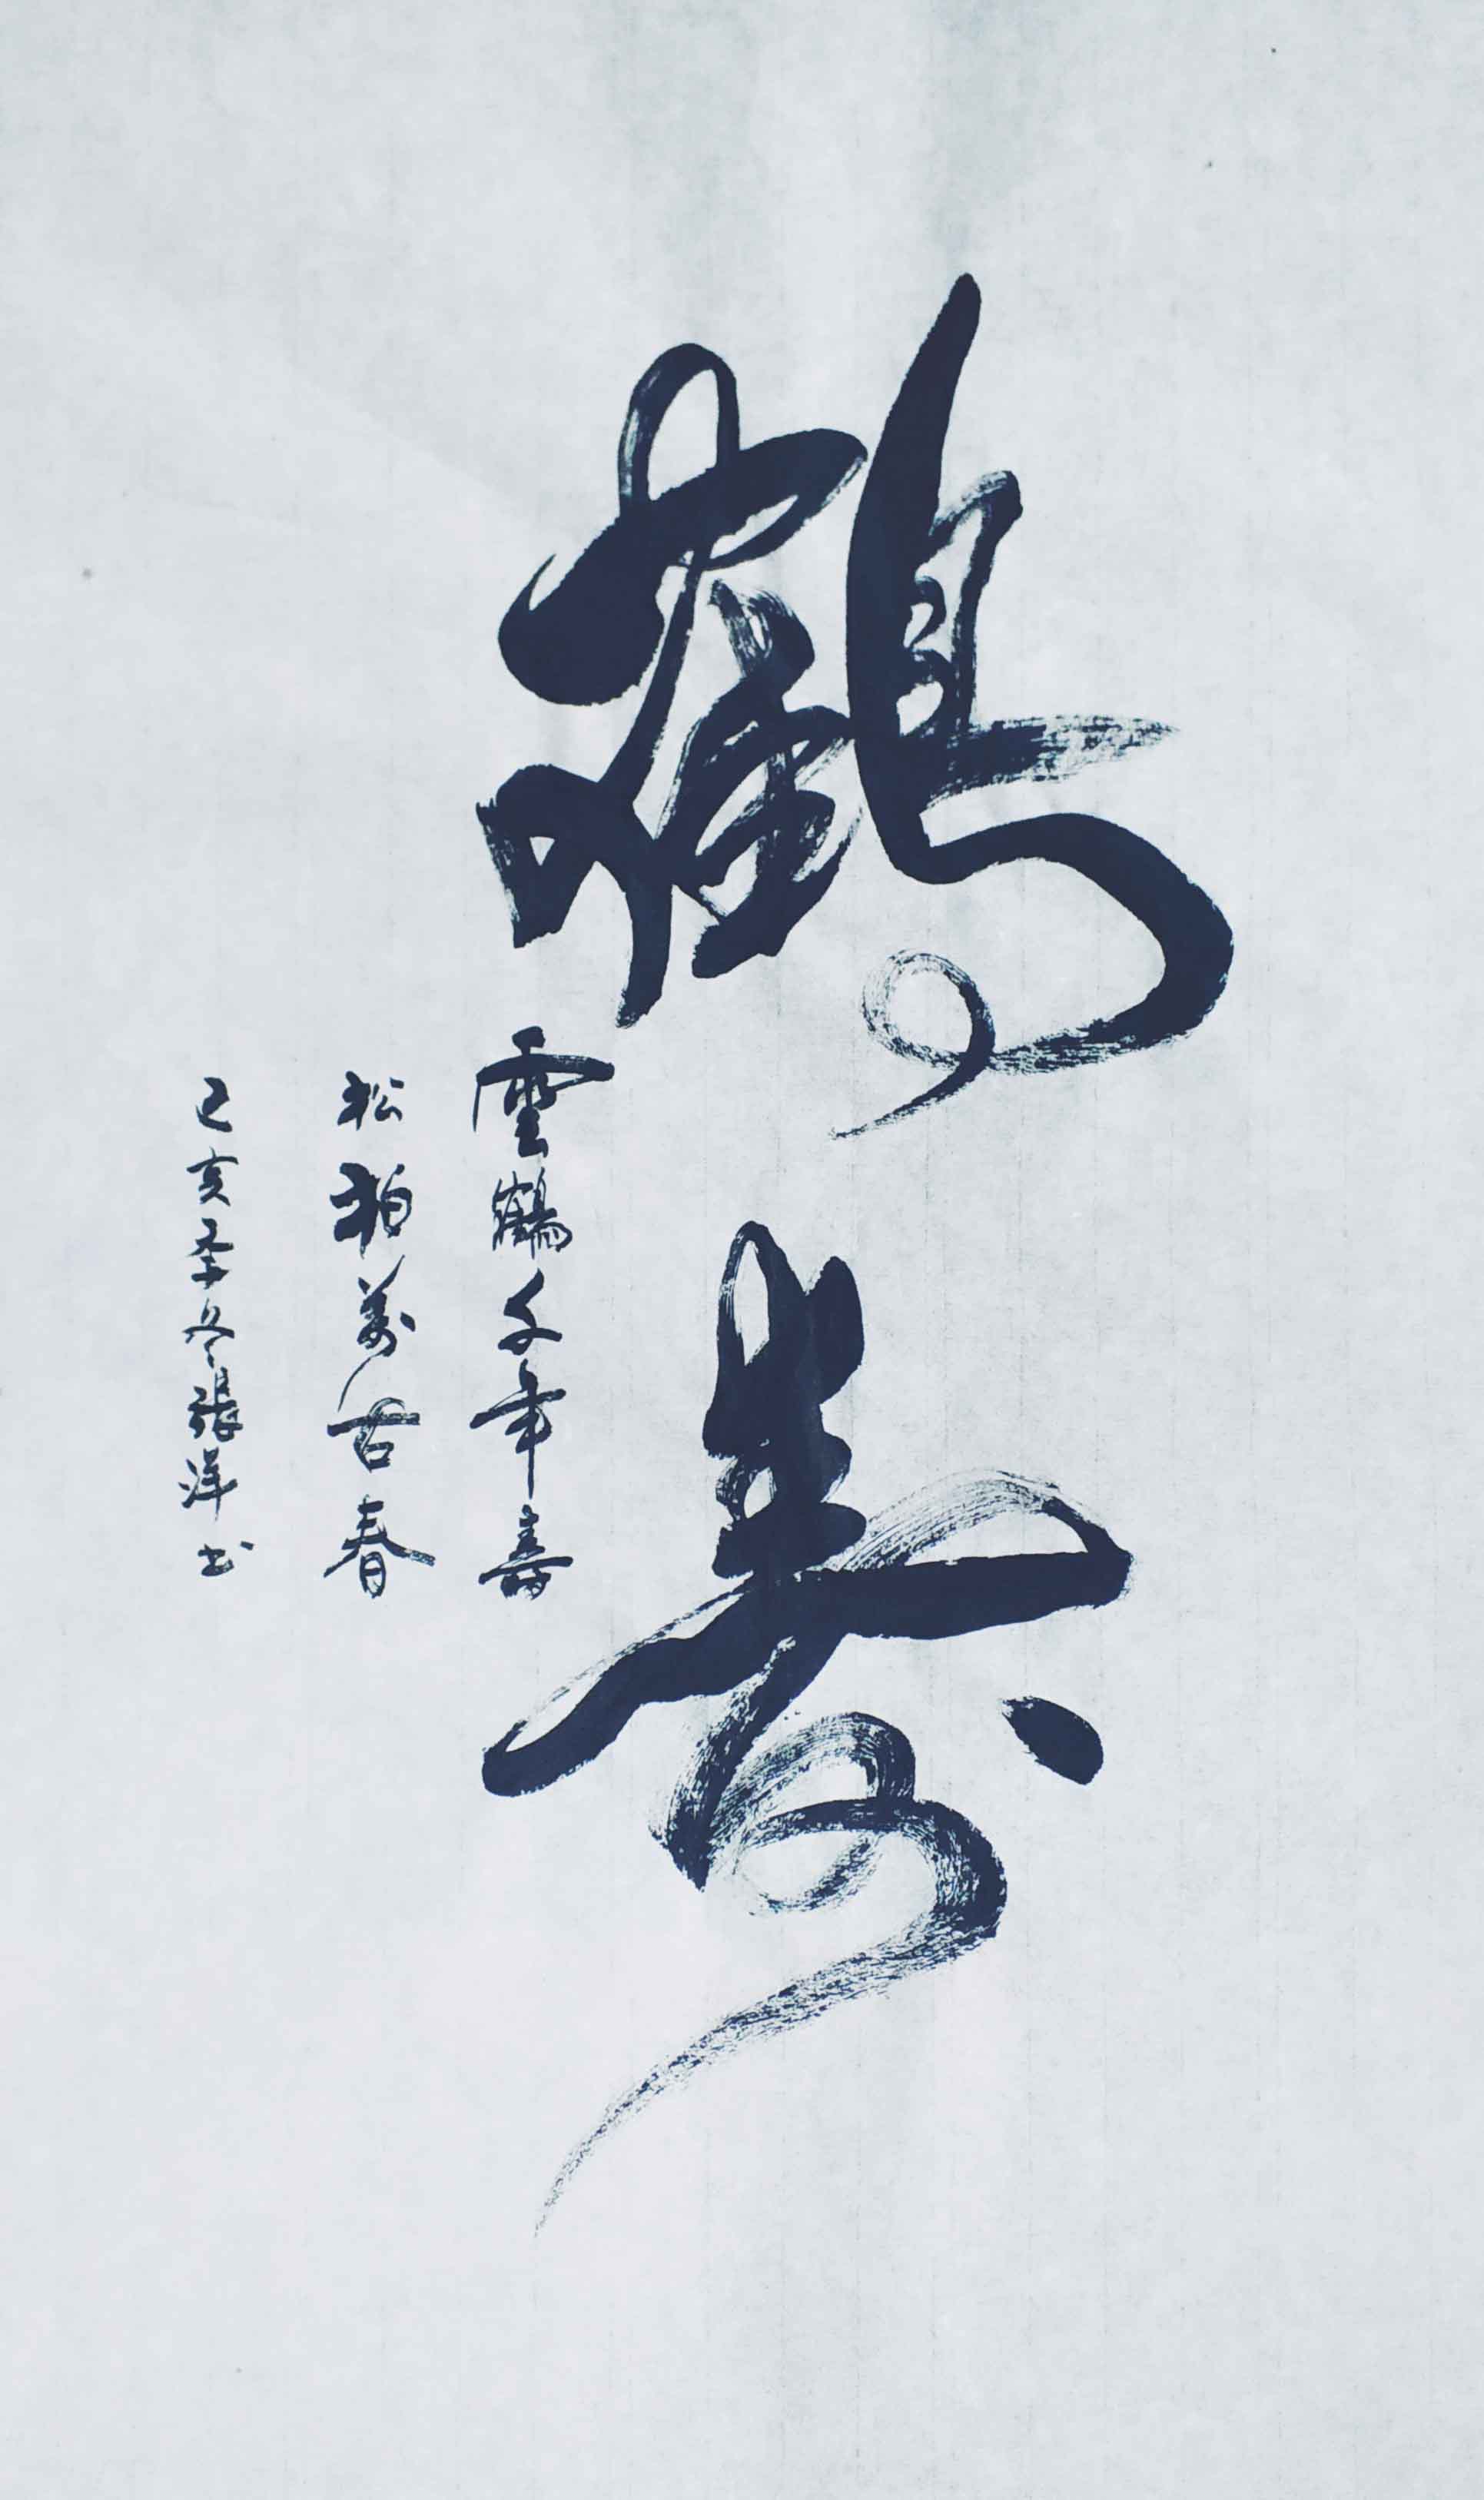 鶴寿
雲鶴千年壽
松柏萬古春
己亥季冬張洋书